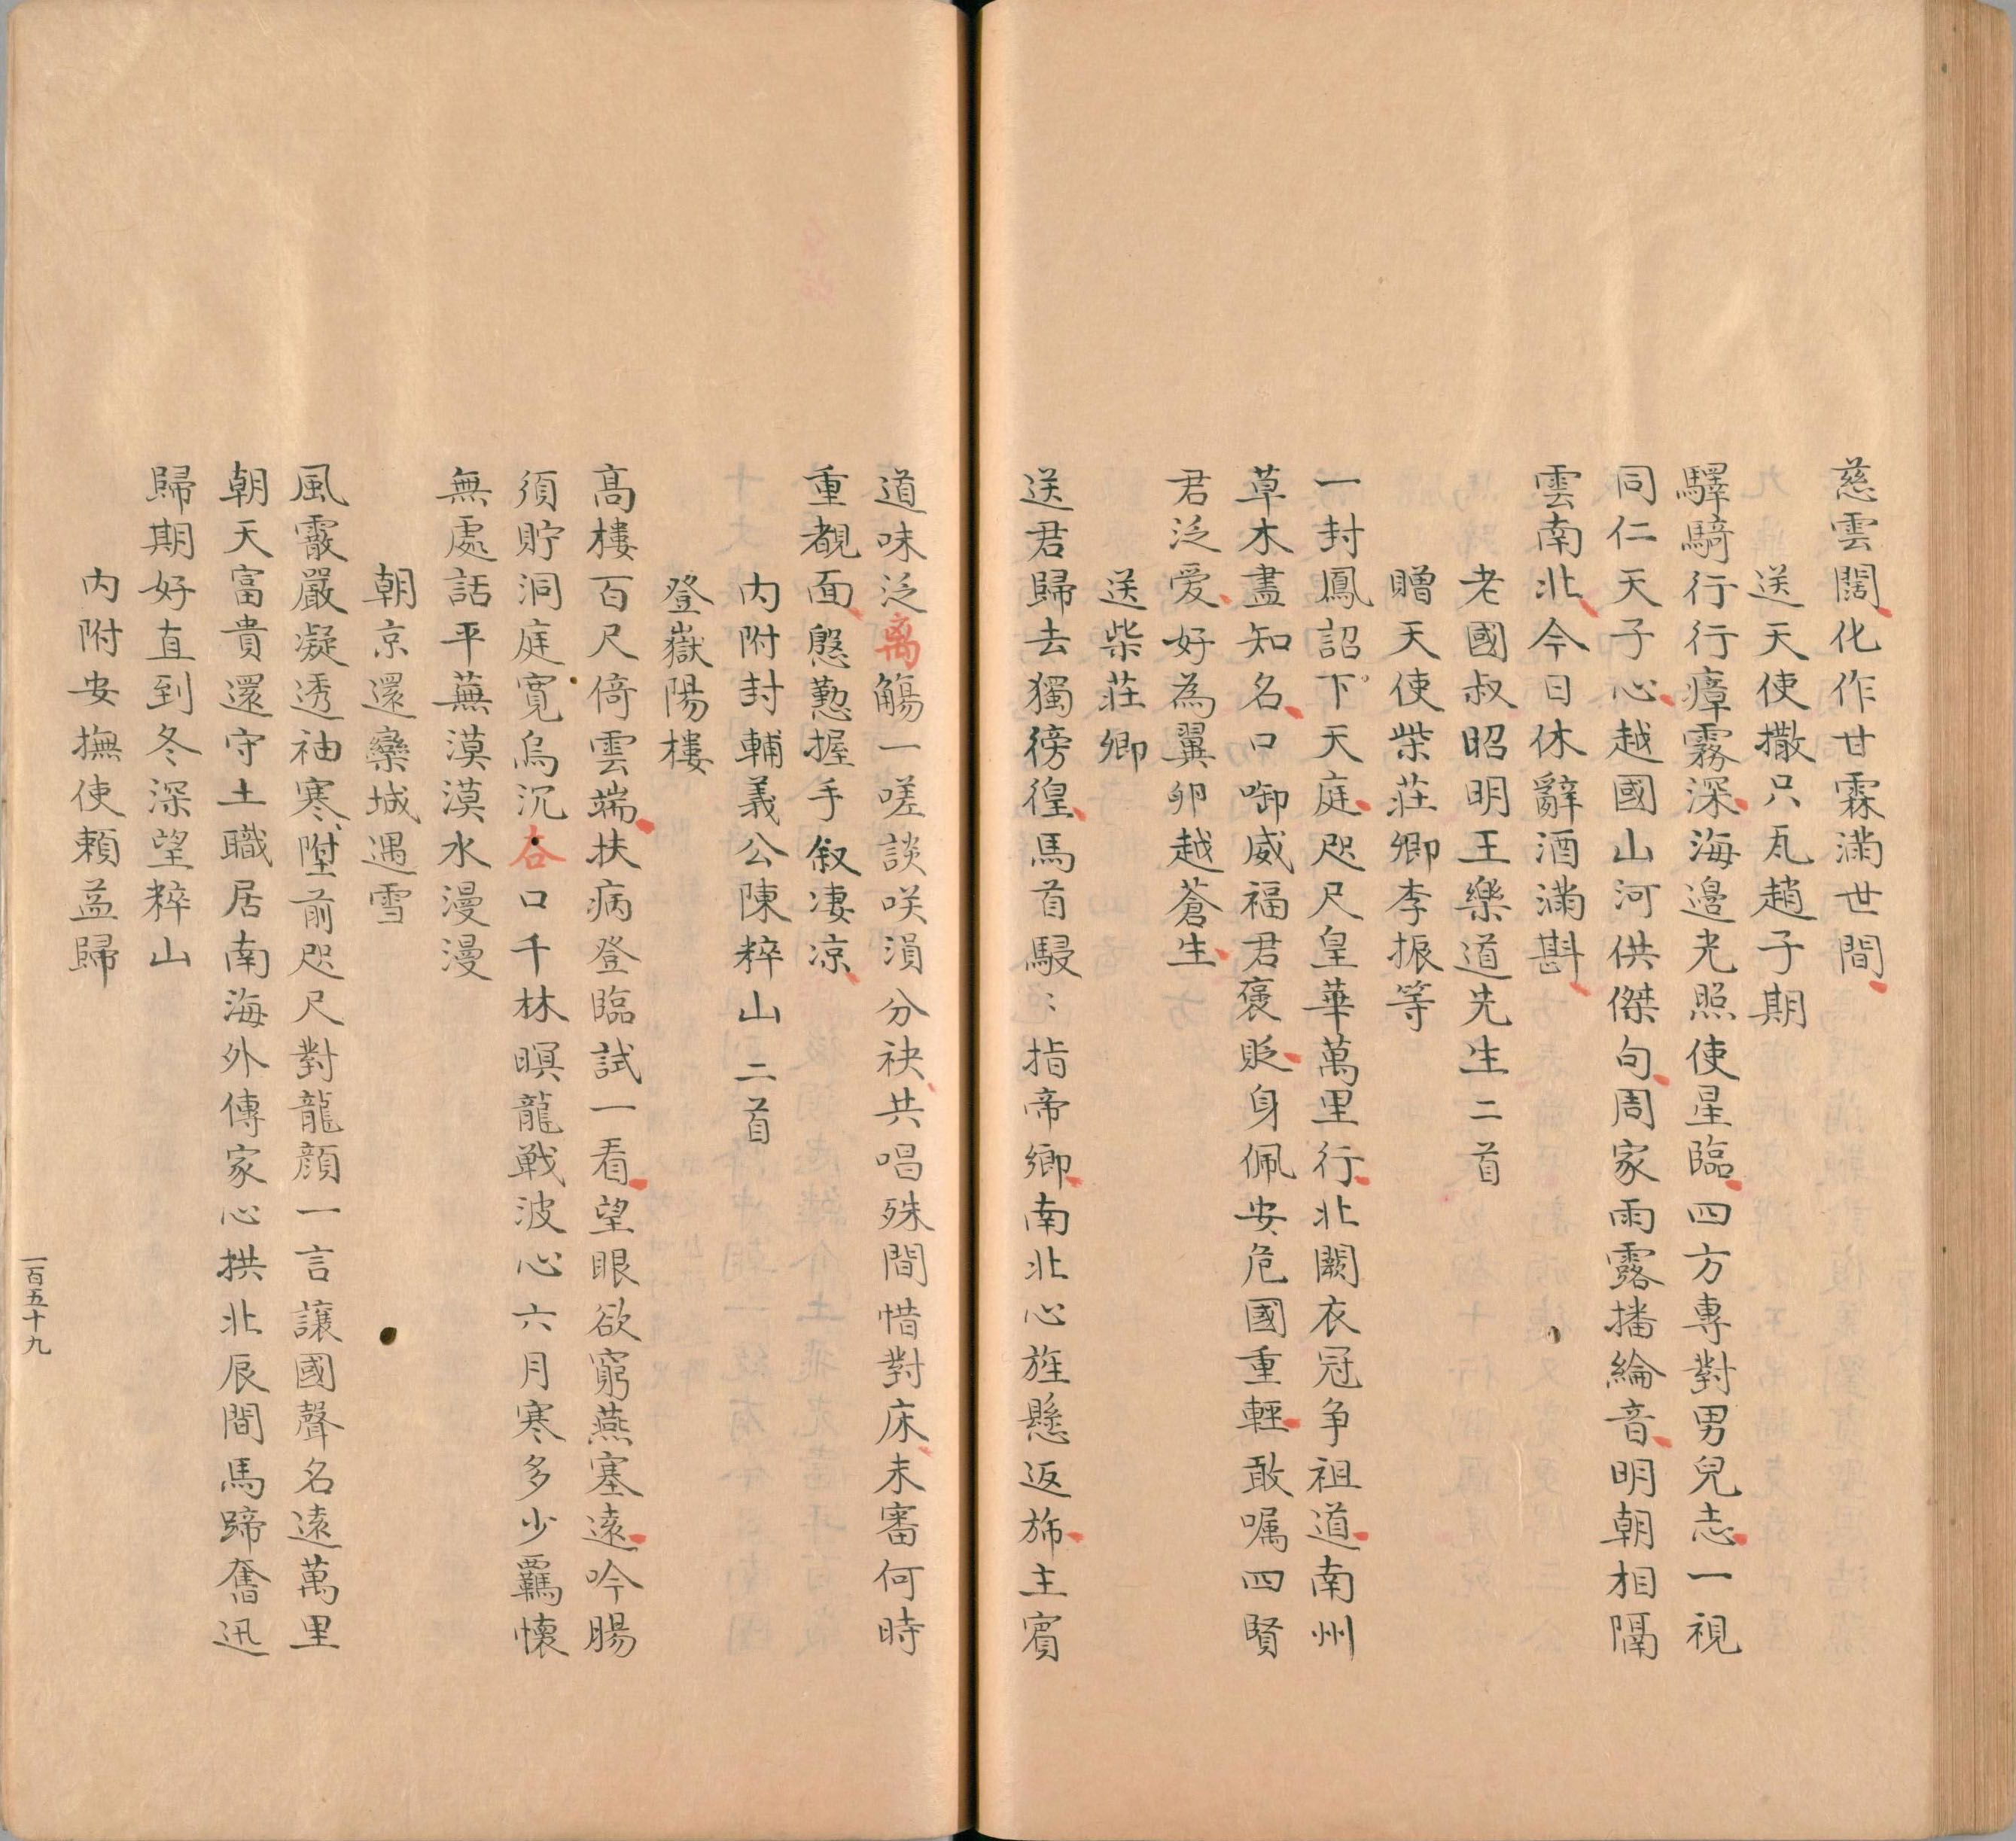 慈雲闊化作甘霖滿世間
送天使撒只瓦趙子期
驛騎行行瘴霧深海邊光照使星臨四方專對男兒志一視
同仁天子心越國山河供傑句周家雨露播綸音明朝相隔
雲南北今日休辭酒滿斟
老國叔昭明王樂道先生二首
贈天使柴莊卿李振等
一封鳳詔下天庭咫尺皇華萬里行北闕衣冠争祖道南州
草木盡知名口啣威福君褒貶身佩安危國重輕敢嘱四賢
君泛爱好為翼卵越蒼生
送柴莊卿
送君歸去獨徬徨馬首駸〻指帝鄉南北心旌懸返旆主賓
道味泛离觴一嗟談咲湏分袂共唱殊間惜對床未審何時
重覩面慇懃握手叙凄凉
内附封輔義公陳粹山二首
登嶽陽樓
高樓百尺倚雲端扶病登臨試一看望眼欲窮燕塞遠吟腸
須貯洞庭寬烏沉谷口千林暝龍戦波心六月寒多少羈懷
無處話平蕪漠漠水漫漫
朝京還欒城遇雪
風霰嚴凝透袖寒陛前咫尺對龍顔一言讓國聲名遠萬里
朝天富貴還守土職居南海外傳家心拱北辰間馬蹄奮迅
歸期好直到冬深望粹山
内附安撫使賴益歸
一百五十九